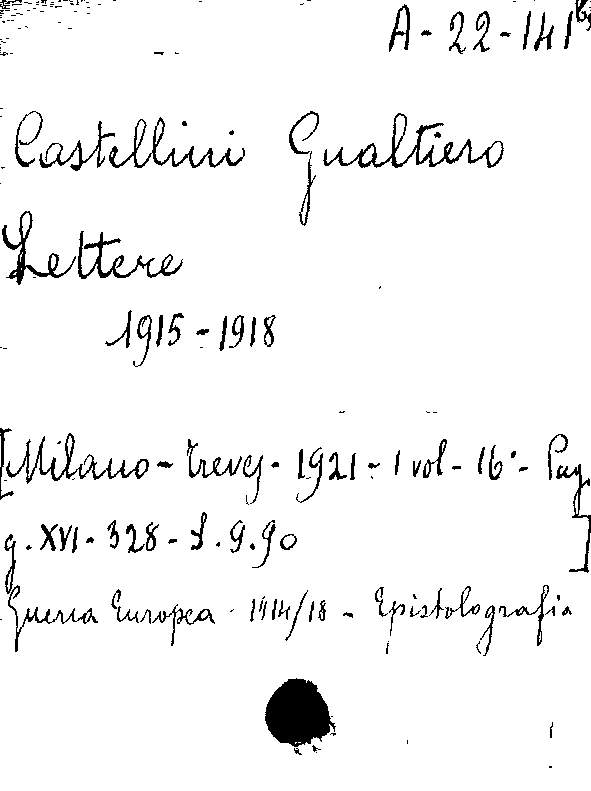 A - 22 - 141
Castellini Gualtiero
Lettere
1915 - 1918
[Milano - Treves - 1921 - 1 vol - 16° - Pag.
g. XVI - 328 - L. 9.90 ]
Guerra Europea - 1914/18 - Epistolografia